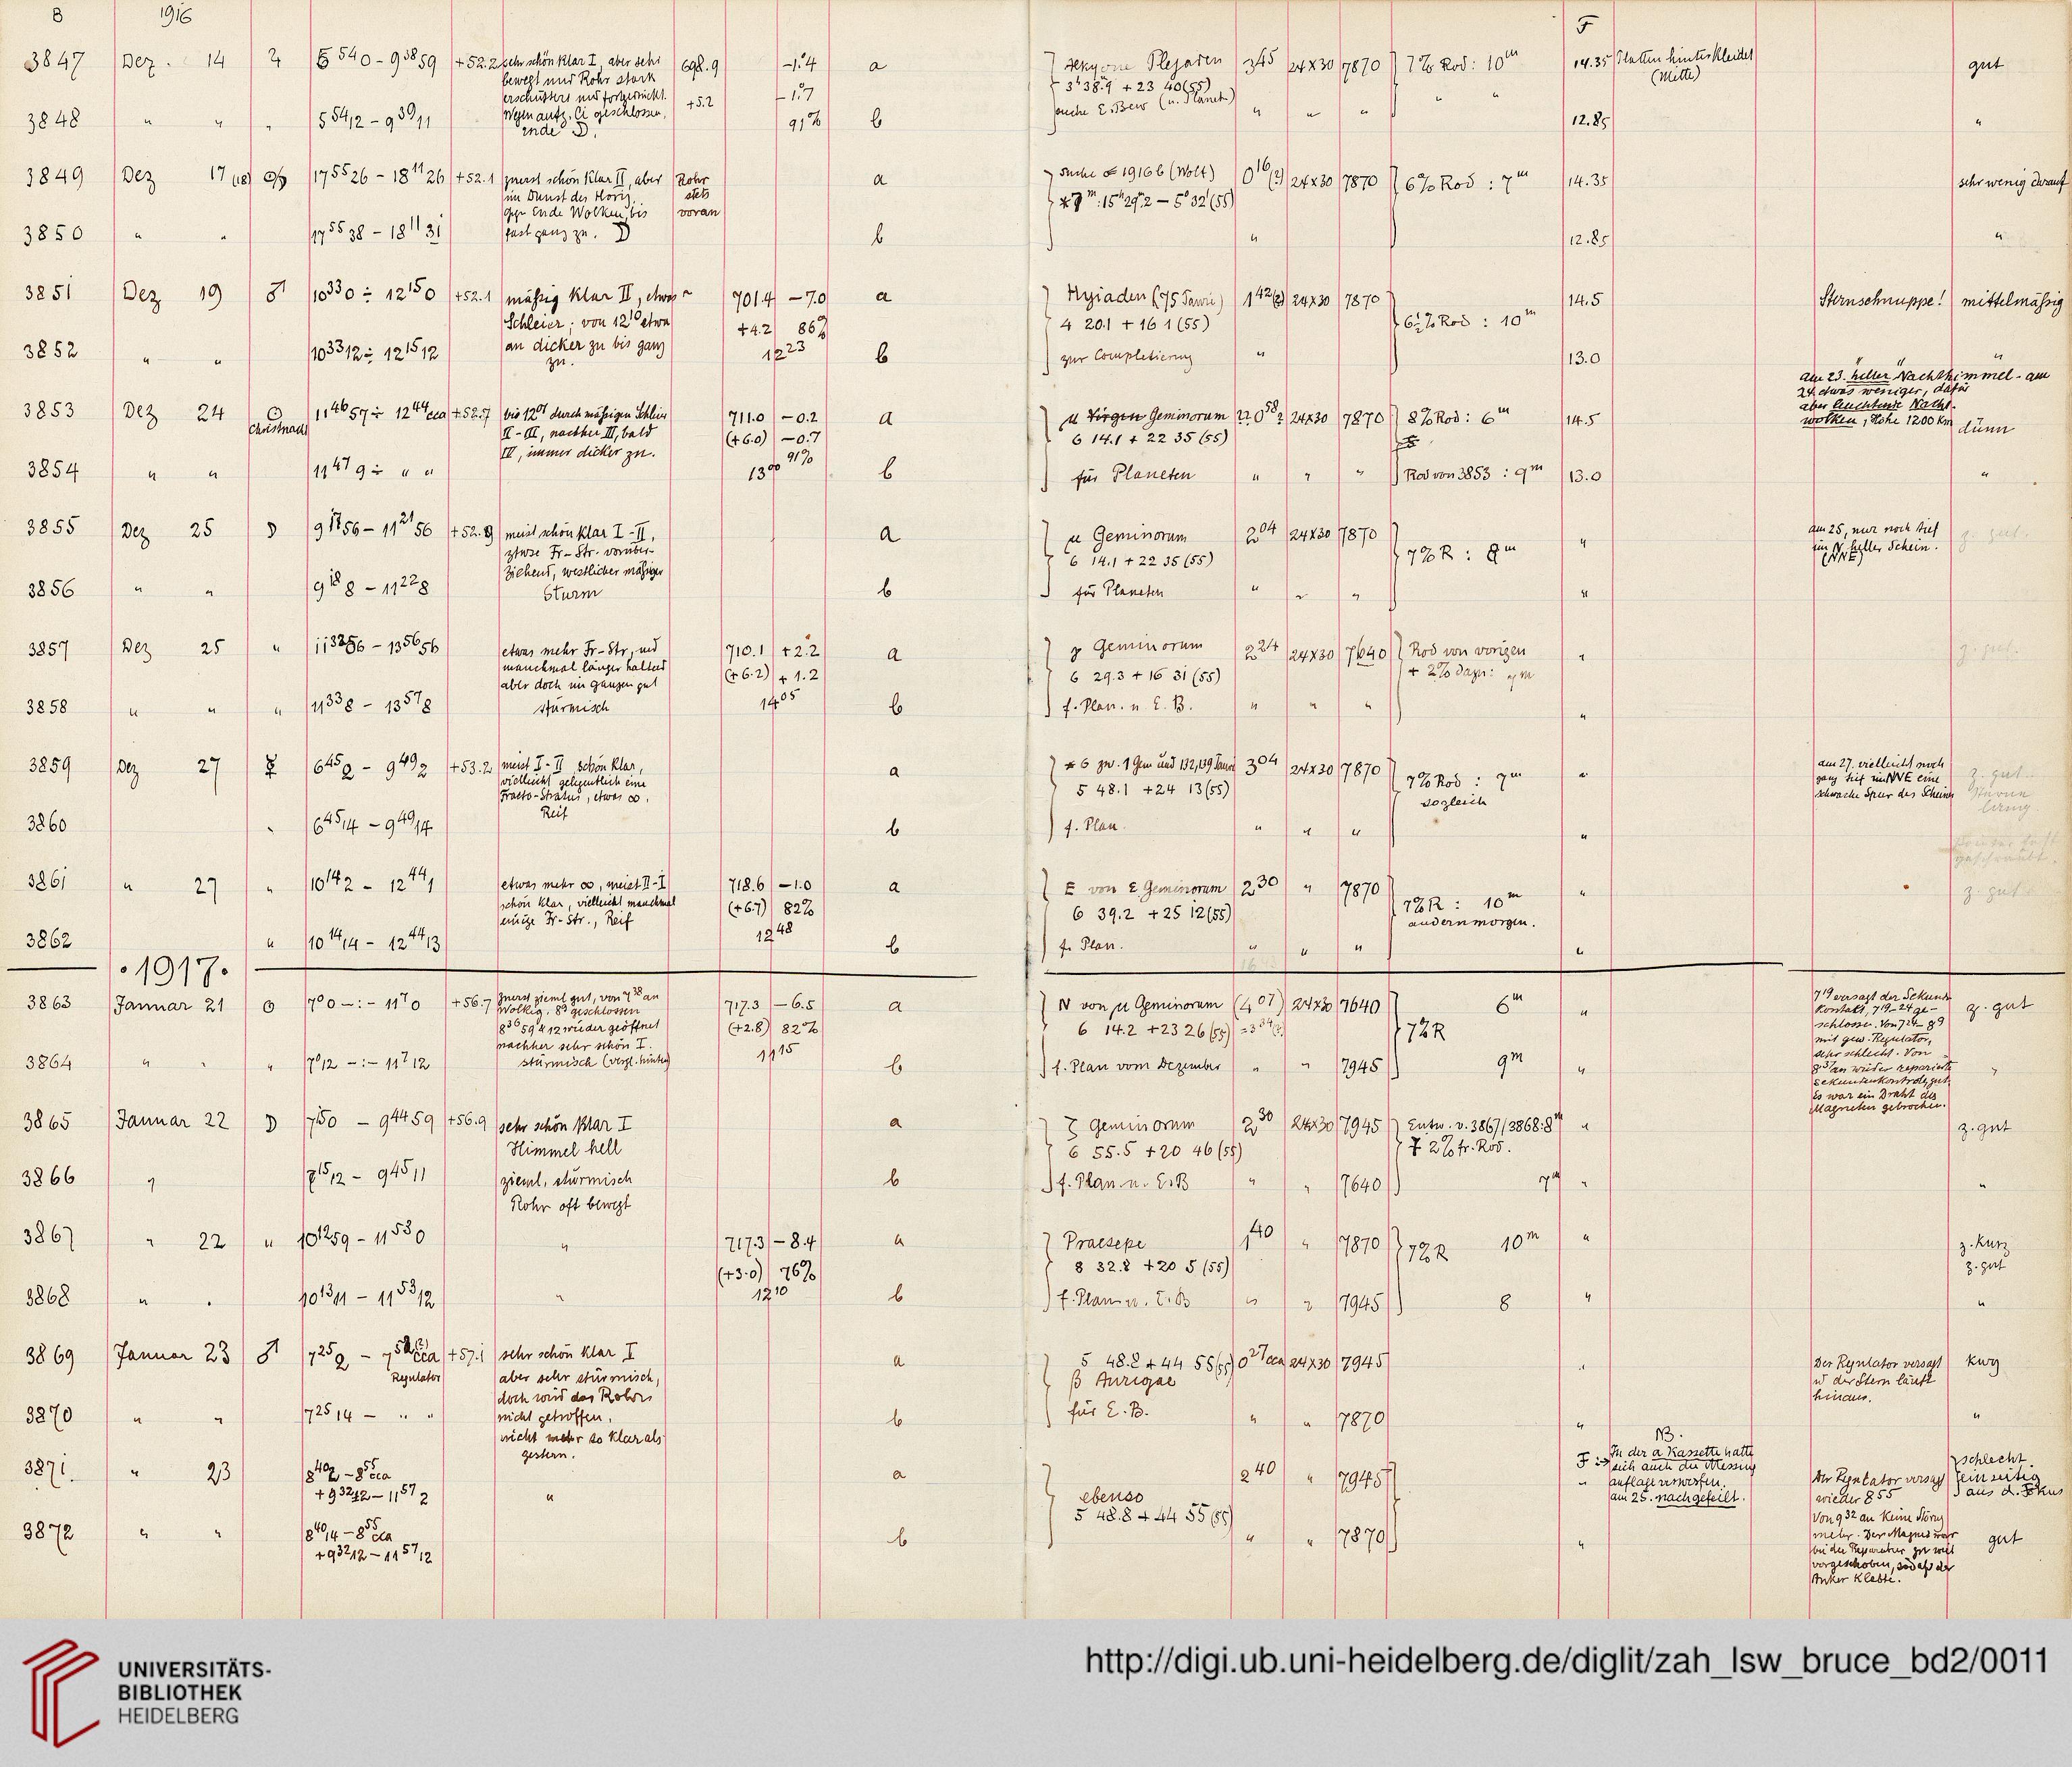 8 1916 F
3847 Dez. 14 ♃ 5 54 0 – 9 38 59 +52.2 sehr schön klar I, aber sehr 698.9 –1.4 a Alkyone Plejaden 3 45 24×30 7870 7% Rod: 10m 14.35 Platten hinterkleidet gut
bewegt und Rohr stark –1.7 3h 38.9 + 23 40 (55) (Mitte)
erschüttert und fortgerückt. +5.2
Wegen aufz. Ci geschlossen.
3848 " " " 5 54 12 – 9 39 11 Ende D. 91% b " " " 12.85 "
3849 Dez 17 (18) 17 55 26 – 18 11 26 +52.1 zuerst schön klar II, aber Rohr a suche 1916 b (Wolf) 0 16 (?) 24×30 7870 6% Rod : 7m 14.35 sehr wenig darauf
im Dunst des Horiz. stets 15h 29m.2 – 5° 32' (55)
gegen Ende Wolken, bis voran
3850 " " 17 55 38 – 18 11 31 fast ganz zu. D b " 12.85 "
3851 Dez 19 ♂ 10 33 0 ÷ 12 15 0 +52.1 mäßig klar II, etwas 701.4 –7.0 a Hyiaden (75 Tauri) 1 42 (?) 24×30 7870 14.5 Sternschnuppe! mittelmäßig
Schleier; von 12 10 etwa +4.2 86% 4 20.1 + 16 1 (55) 6½% Rod : 10m
3852 " " 10 33 12 ÷ 12 15 12 an dicker zu bis ganz 12 23 b zur Completierung " 13.0 "
zu.
am 23. heller Nachthimmel - am
24. etwas weniger, dafür
aber leuchtende Nacht-
wolken, Höhe 1200 km
3853 Dez 24 ⊙ 11 46 57 ÷ 12 44 cca +52.7 bis 12 01 durch mäßigen Schleier 711.0 –0.2 a μ Virgen Geminorum 0 58 24×30 7870 8% Rod : 6m 14.5 dünn
Christnacht II–III, nachher III, bald (+6.0) –0.7 6 14.1 + 22 35 (55)
IV, immer dicker zu. 91%
3854 " " 11 47 9 ÷ " " 13 00 b für Planeten " " " Rod von 3853 : 9m 13.0 "
3855 Dez 25 D 9 17 56 – 11 21 56 +52.9 meist schön klar I–II, a μ Geminorum 2 04 24×30 7870 " am 25. nur noch tief z. gut.
etwas Fr–Str. vorüber- 6 14.1 + 22 35 (55) 7% R : 8m im N heller Schein.
ziehend, westlicher mäßiger (NNE)
3856 " " 9 18 8 – 11 22 8 Sturm b für Planeten " " " "
3857 Dez 25 " 11 32 56 – 13 56 56 etwas mehr Fr–Str, und 710.1 +2.2 a γ Geminorum 2 24 24×30 7640 Rod von vorigen " z. gut.
manchmal länger haltend (+6.2) +1.2 6 29.3 + 16 31 (55) + 2% dazu: 9m
aber doch im ganzen gut
3858 " " " 11 33 8 – 13 57 8 stürmisch 14 05 b f. Plan. u. E. B. " " " "
3859 Dez 27 ☿ 6 45 2 – 9 49 2 +53.2 meist I–II, schön klar, a * 6 zw. 1 Gem und 132, 139 Tauri 3 04 24×30 7870 7% Rod : 7m " am 27. vielleicht noch z. gut
vielleicht gelegentlich eine 5 48.1 + 24 13 (55) sogleich ganz tief im NNE eine
Fracto-Stratus, etwas ∞. schwache Spur des Scheines
Reif
3860 " 6 45 14 – 9 49 14 b f. Plan. " " " "
3861 " 27 " 10 14 2 – 12 44 1 etwas mehr ∞, meist II–I 718.6 –1.0 a E von ε Geminorum 2 30 " 7870 7% R : 10m " z. gut
schön klar, vielleicht manchmal (+6.7) 82% 6 39.2 + 25 12 (55) andern morgen.
einige Fr–Str., Reif
3862 " 10 14 14 – 12 44 13 12 48 b f. Plan. " " " "
· 1917 ·
3863 Januar 21 ⊙ 7 0 0 –:– 11 7 0 +56.7 zuerst zieml gut, von 7 38 an 717.3 –6.5 a N von μ Geminorum (4 07) 24×30 7640 6m " 7 19 versagt der Sekunden z. gut
Wolkig. geschlossen (+2.8) 82% 6 14.2 + 23 26 (55) 7% R Kontakt, 7 19 – 24 ge-
wieder geöffnet schlossen. Von 7 24 – 8 9
nachher sehr schön I. mit gew. Regulator,
3864 " " " 7 0 12 –:– 11 7 12 stürmisch (vergl. hinten) 11 15 b f. Plan vom Dezember " " 7945 9m " sehr schlecht. Von "
an wieder reparierte
Sekundenkontrolle, gut.
Es war ein Draht des
Magneten gebrochen.
3865 Januar 22 D 7 15 0 – 9 44 59 +56.9 sehr schön klar I a ζ Geminorum 2 30 24×30 7945 Entw. v. 3867/3868: 8m " z. gut
Himmel hell 6 55.5 + 20 46 (55) + 2% fr. Rod.
3866 " 7 15 12 – 9 45 11 zieml. stürmisch b f. Plan. u. E. B " " 7640 7m " "
Rohr oft bewegt
3867 " 22 " 10 12 59 – 11 53 0 " 717.3 –8.4 a Praesepe 1 40 " 7870 7% R 10m " z. kurz
(+3.0) 76% 8 32.8 + 20 5 (55) z. gut
3868 " " 10 13 11 – 11 53 12 " 12 10 b f. Plan. u. E. B " " 7945 8 " "
3869 Januar 23 ♂ 7 25 2 – 7 52 (?) cca +57.1 sehr schön klar I a 5 48.8 + 44 55 (55) 0 27 cca 24×30 7945 " Der Regulator versagt kurz
Regulator aber sehr stürmisch, β Aurigae u der Stern läuft
doch wird das Rohr hinaus.
3870 " " 7 25 14 – " " nicht getroffen. b für E. B. " " 7870 " "
nicht mehr so klar als
gestern.
NB.
In der a Kassette hatte
sich auch die Messing
auflage verworfen.
am 25. nachgefeilt.
3871. " 23 8 40 2 – 8 55 cca " a ebenso 2 40 " 7945 F Der Regulator versagt schlecht.
+ 9 32 12 – 11 57 2 5 48.8 + 44 55 (55) wieder 8 55 einseitig
Von 9 32 an keine Störung aus d. Fokus
3872 " " 8 40 14 – 8 55 cca b " " 7870 " mehr. Der Magnet war gut
+ 9 32 12 – 11 57 12 bei der Reparatur zu weit
vorgeschoben, sodaß der
Anker klebte.
UNIVERSITÄTS-
BIBLIOTHEK
HEIDELBERG
http://digi.ub.uni-heidelberg.de/diglit/zah_lsw_bruce_bd2/0011